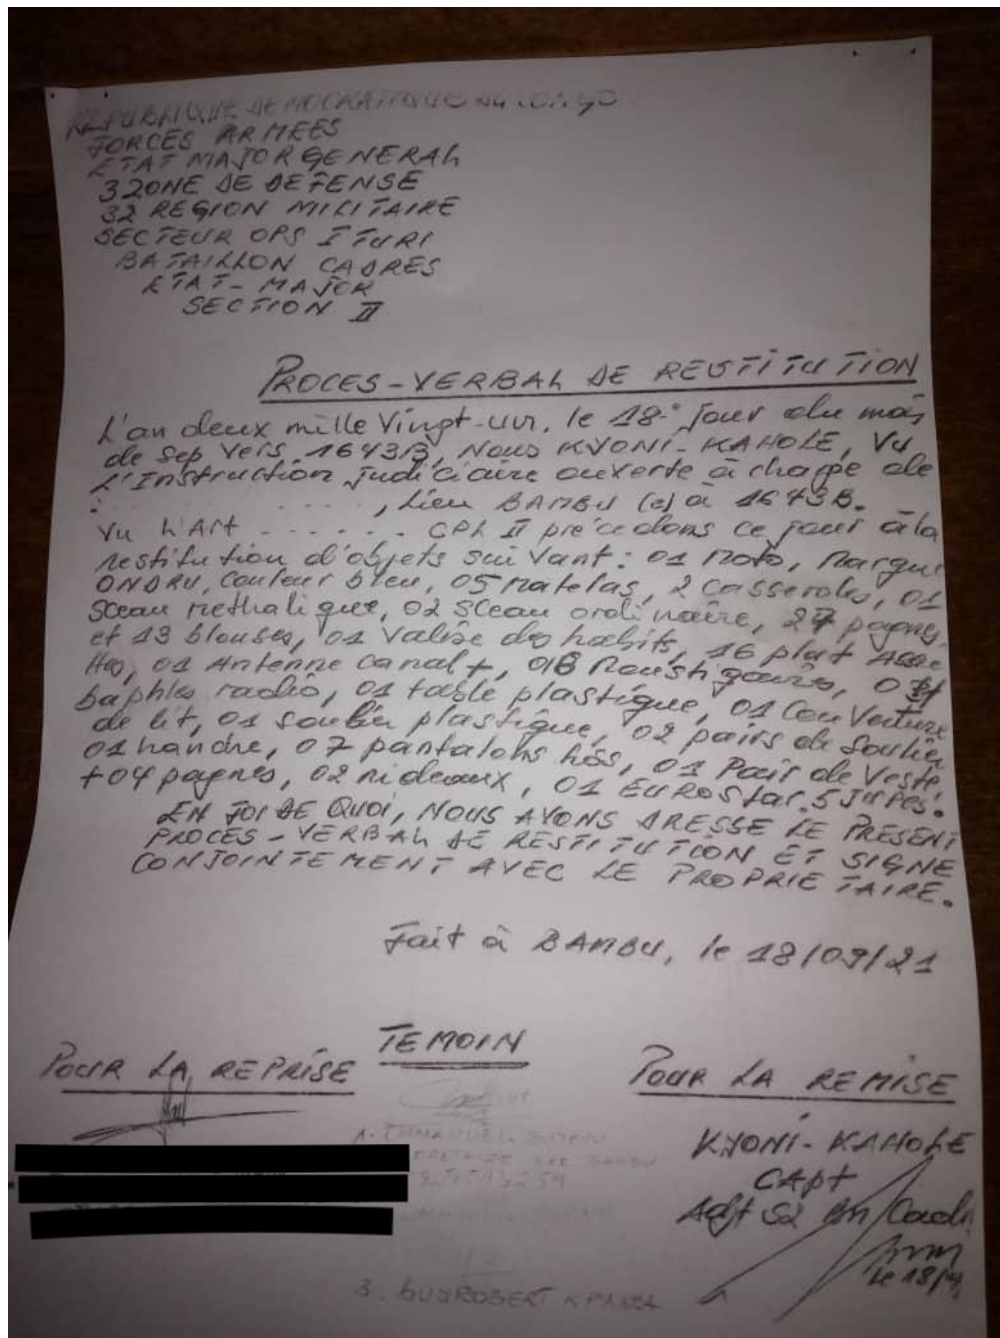 REPUBLIQUE DEMOCRATIQUE du CONGO
FORCES ARMEES
ETAT MAJOR GENERAL
3 ZONE DE DEFENSE
32 REGION MILITAIRE
SECTEUR OPS ITURI
BATAILLON CADRES
ETAT-MAJOR
SECTION II
PROCES-VERBAL DE RESTITUTION
L'an deux mille Vingt-un, le 18e jour du mois
de Sep vers 1643B, Nous KYONI-KAHOLE, Vu
L'Instruction judiciaire ouverte à charge de
: . . . . , Lieu BAMBU (e) à 1643B.
Vu L'Art . . . . . . CPL II précedons ce jour à la
restitution d'objets suivant : 01 Moto, Marque
ONDRU, Couleur bleu, 05 Matelas, 2 Casseroles, 01
Sceau methalique, 02 Sceau ordinaire, 27 pagnes
et 13 blouses, 01 Valise des habits, 16 plat
01 Antenne canal+,
baphles radio, 01 table plastique, 01 Couverture
de lit, 01 soulier plastique, 02 pairs de Soulier
01 handre, 07 pantalons, 01 Pair de Veste
+04 pagnes, 02 rideaux, 01 EUROStar. 5 JUPES.
EN FOI DE QUOI, NOUS AVONS DRESSE LE PRESENT
PROCES-VERBAL DE RESTITUTION ET SIGNE
CONJOINTEMENT AVEC LE PROPRIETAIRE.
Fait à BAMBU, le 18/09/21
TEMOIN
POUR LA REPRISE
POUR LA REMISE
KYONI-KAHOLE
CAPt
Adjt S2 Bn Cadre
le 18/9
1. EMMANUEL
BAMBU
3.